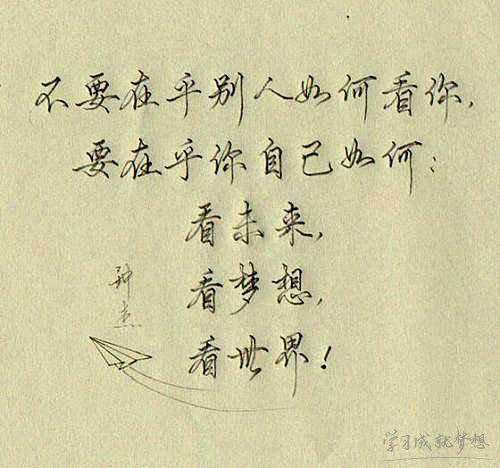 不要在乎别人如何看你,
要在乎你自己如何:
看未来,
看梦想,
看世界!
钟杰
学习成就梦想